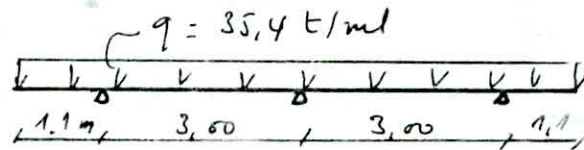 q = 35,4 t/ml
1.1 m 3,00 3,00 1,1